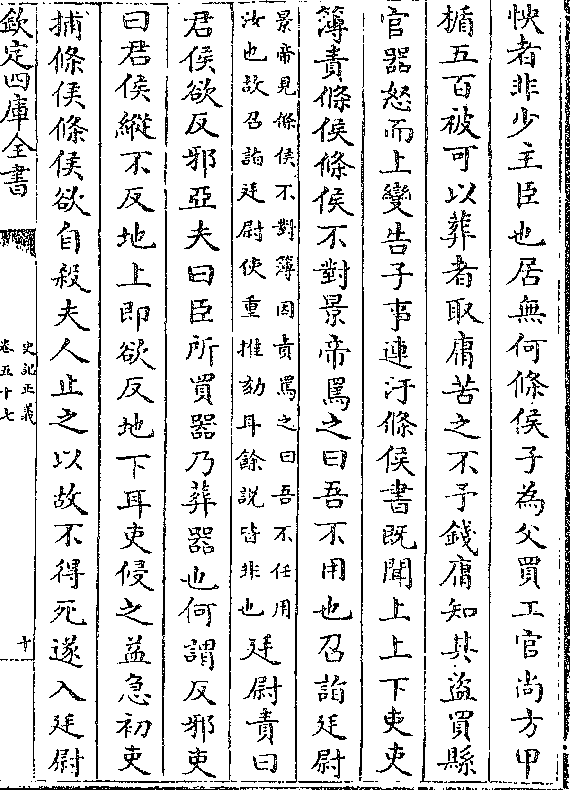 怏者非少主臣也居無何條侯子為父買工官尚方甲
楯五百被可以葬者取庸苦之不予錢庸知其盜買縣
官器怒而上變告子事連汙條侯書既聞上上下吏吏
簿責條侯條侯不對景帝罵之曰吾不用也召詣廷尉
景帝見條侯不對簿因責罵之曰吾不任用
汝也故召詣廷尉使重推劾耳餘說皆非也
廷尉責曰
君侯欲反邪亞夫曰臣所買器乃葬器也何謂反邪吏
曰君侯縱不反地上即欲反地下耳吏侵之益急初吏
捕條侯條侯欲自殺夫人止之以故不得死遂入廷尉
欽定四庫全書
史記正義
卷五十七
十